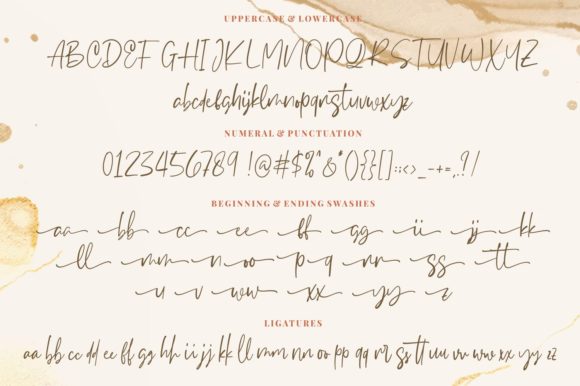 UPPERCASE & LOWERCASE
ABCDEF GHIJKLMNOPQRSTUVWXYZ
abcdefghijklmnopqrstuvwxyz
NUMERAL & PUNCTUATION
0123456789 !@#$%^&*(){}[]:;<>_-+=,.?/
BEGINNING & ENDING SWASHES
aa bb cc ee ff gg ii jj kk
ll mm n oo p q nr ss tt
u v ww xx yy z
LIGATURES
aa bb cc dd ee ff gg hh ii jj kk ll mm nn oo pp qq rr ss tt uu vv ww xx yy zz